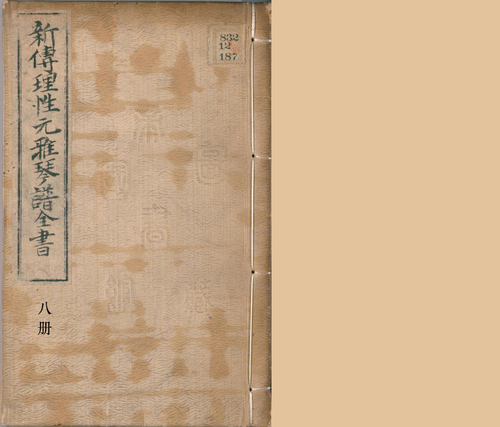 新傳理性元雅琴譜全書
八册
832
12
187